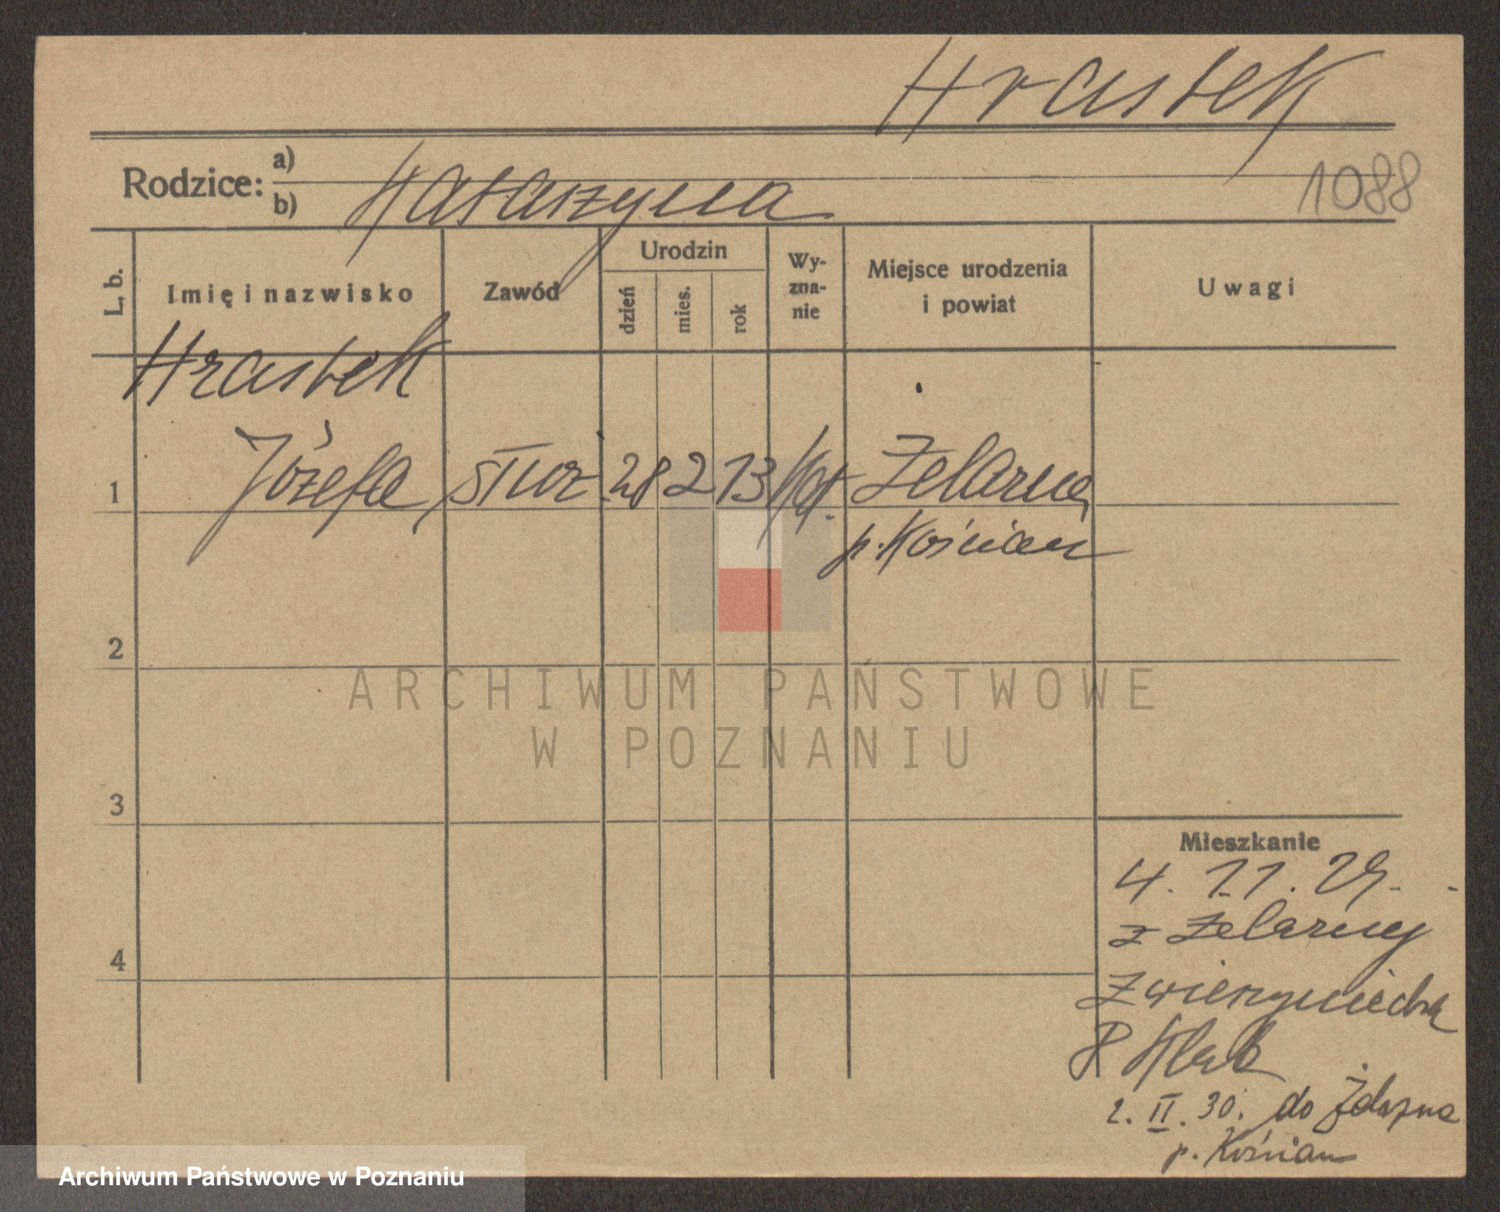 Hrastek
Rodzice: a)
b) Katarzyna
1088
L. b.
Imię i nazwisko
Zawód
Urodzin
dzień
mies.
rok
Wy-
zna-
nie
Miejsce urodzenia
i powiat
Uwagi
Hrastek
1 Józefa, służ 28 2 13 kat. Żelazna
p. Kościan
2
3
4
Mieszkanie
4. 11. 29.
z Żelazny
Zwierzyniecka
8
2. II. 30. do Żelazna
p. Kościan
ARCHIWUM PAŃSTWOWE
W POZNANIU
Archiwum Państwowe w Poznaniu